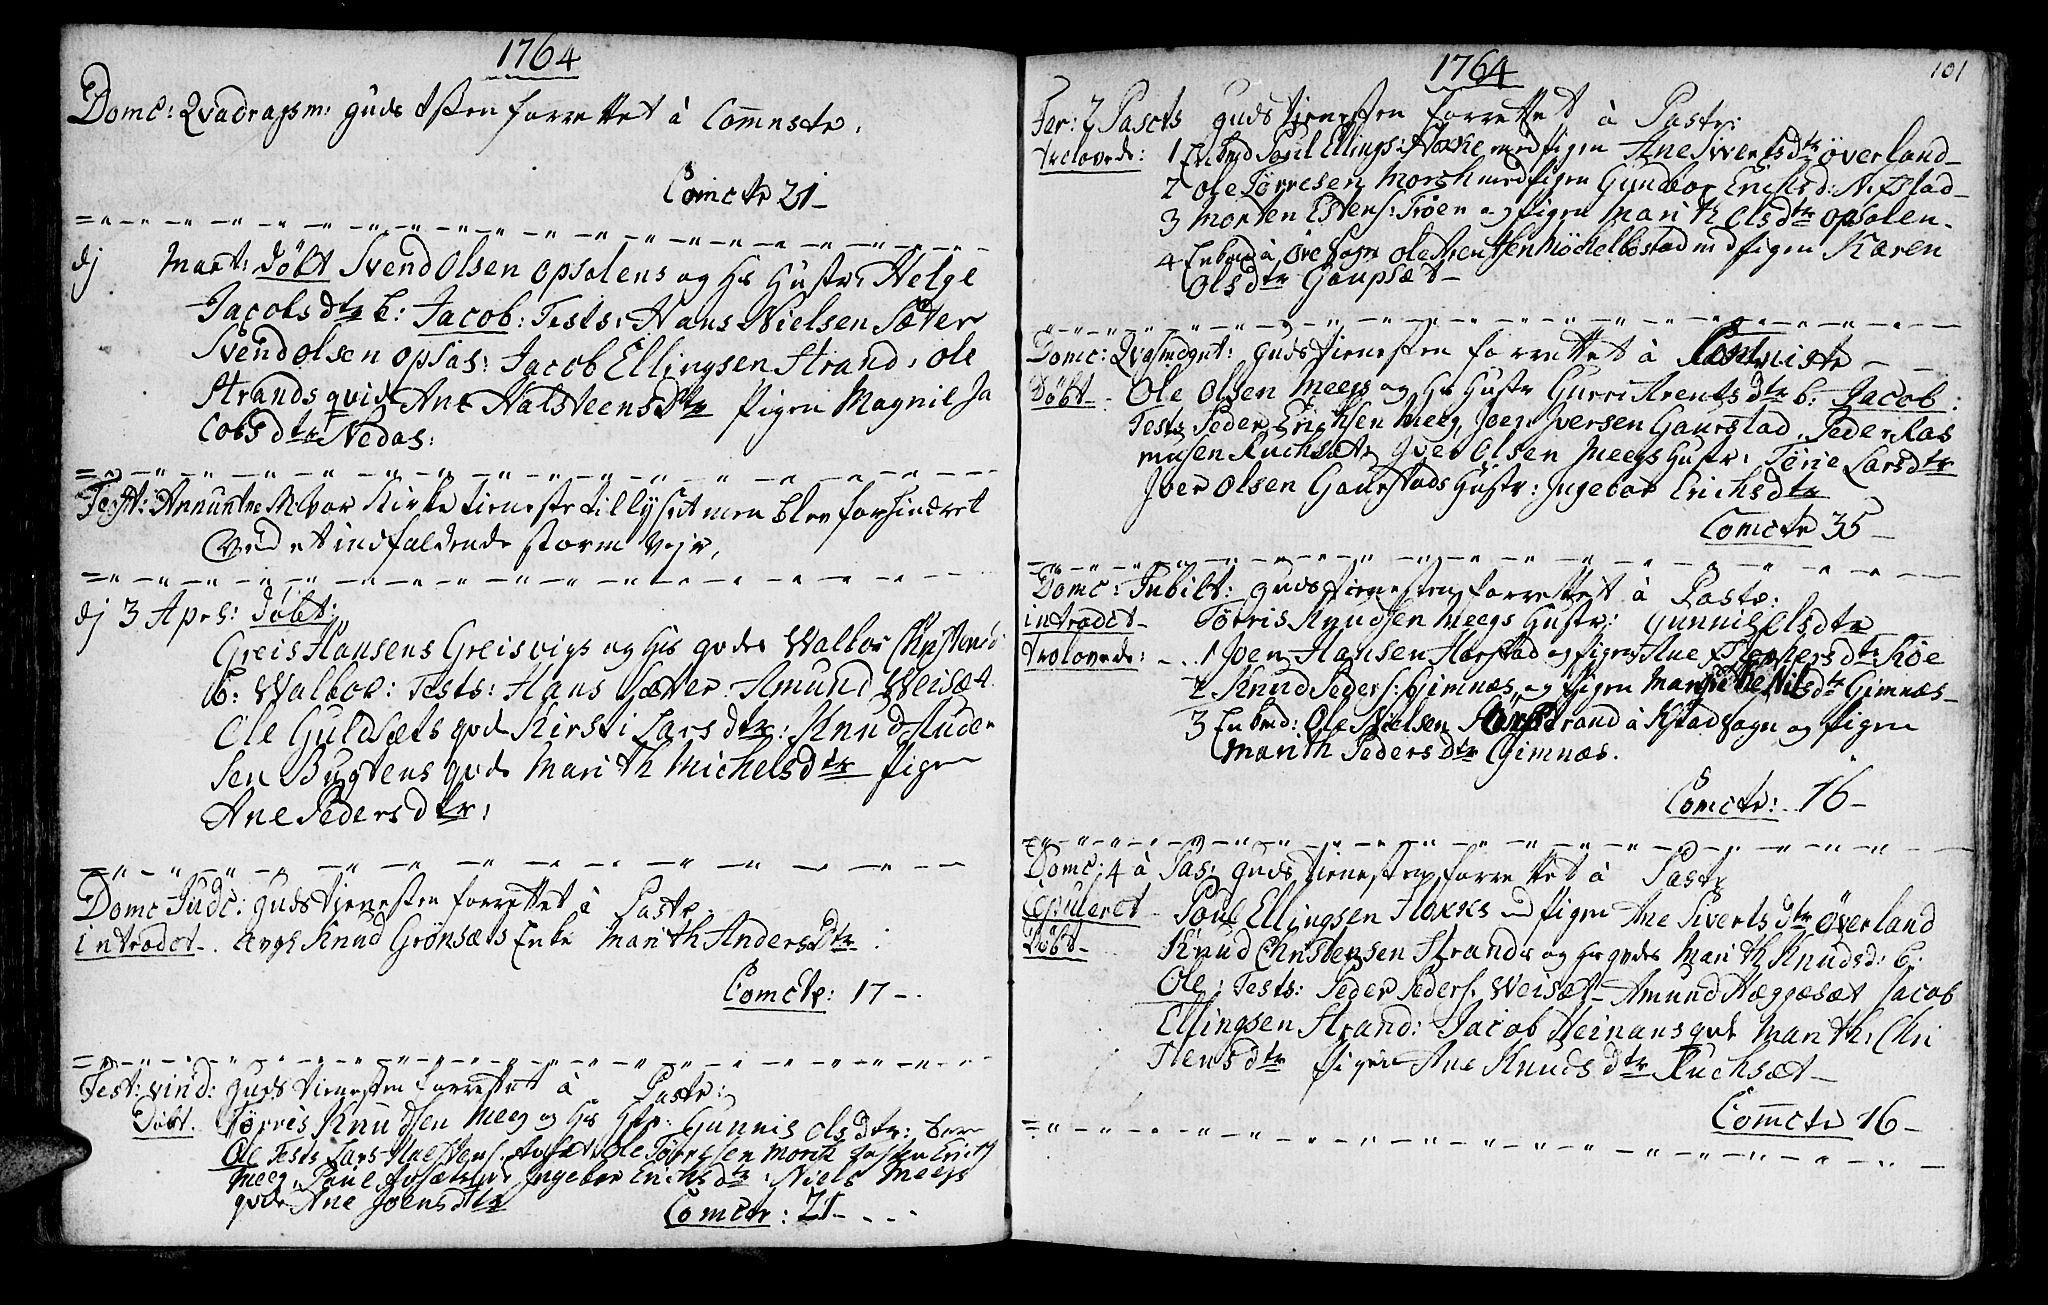 1764
Domc: Qvadragsm: guds tisten forrettet à Comnste.
Comcte 21-
dj Mart: Døbt Svend Olsen Opsalens og hs hustr: Helge
Jacobsdtr b: Jacob: Tests: Hans Nielsen Sæter
Svend Olsen Opsas: Jacob Ellingsen Strand: Ole
Strands qvid Ane Halsteensdtr Pigen Magnil Ja
cobsdtr Nedas:
Fest: Annuntne M: var Kirketieneste tillyset men blev forhindret
ved et indfaldende storm vejr,
dj 3 Apr: Døbt:
Greis Hansens Greisvigs og hs qvdes Walbor Christensd:
b: Walbor: Tests: Hans Sæter Amund Weisæt
Ole Guldsets qvd Kirsti Larsdtr: Knud Knud
sen Bugtens qvd: Marith Michelsdtr Pigen
Ane Pedersdtr:
Domc Judc: guds tienesten forrettet à Pastr.
introdct. Avgs Knud Grønsæs Enke Marith Andersdtr:
Comcte: 17-
Fest: vird: guds tienesten forrettet à Pastr:
Døbt. Tørris Knudsen Meeg og hs hstr: Gunnil Olsdtr: barn
Ole Tests Lars Halstens: Aasæt: Ole Tørresen Morch Joen Erichs
Meeg, Paul Aasæters Ingebor Erichsdtr: Niels Meegs
qvd: Ane Joensdtr
Comctr: 21-
1764 101
Fer: 2 Pascts guds tienesten forrettet à Pastr:
trolovede: 1 Enbud Poul Ellings: Hoxne med Pigen Ane Sivertsdtr Överland-
2 Ole Tørresen Morsk med Pigen Gunbor Erichsd: Nistad-
3 Morten Estens: Trøen og Pigen Marith Olsdtr Opsalen-
4 Enbud à Øre Sogn Ole Arentsen Møchelbostad med Pigen Karen
Olsdtr Gaupsæt-
Domc: Qvasmdgnt: guds tienesten forrettet à Comniste
Døbt. Ole Olsen Meegs og hs hustr Gurri Arentsdtr b: Jacob:
Tests Peder Erichsen Meeg, Joen Iversen Gaurstad, Peder Ras
musen Ruchsæt, Iver Olsen Meegs hustr: Tørie Larsdtr
Iver Olsen Gaurstads hustr: Ingebor Erichsdtr
Comcte 35-
Domc: Jubilt: guds tienesten forrettet à Pastr:
introdct- Tørris Knudsen Meegs hustr: Gunnil Olsdtr
trolovede: 1 Joen Hansen Harstad og Pigen Ane Pedersdtr Røe
2 Knud Peders: Gimnæs og Pigen Marithe Nilsdtr Gimnæs-
3 Enbud: Ole Nielsen Strand à Qvadsogn og Pigen
Marith Pedersdtr Gimnæs.
Comcte: 16-
Domc: 4 à Pas: guds tienesten forrettet à Pastr
Copuleret- Poul Ellingsen Hoxns md Pigen Ane Sivertsdtr Överland
Døbt- Knud Christensen Strands og hs qvdes Marith Knudsd: b:
Ole: Tests: Peder Peders: Weisæt- Amund Hæggesæt Jacob
Ellingsen Strand: Jacob Heinans qvd Marith Chri
stensdtr Pigen Ane Knudsdtr Ruchsæt-
Comcte 16-